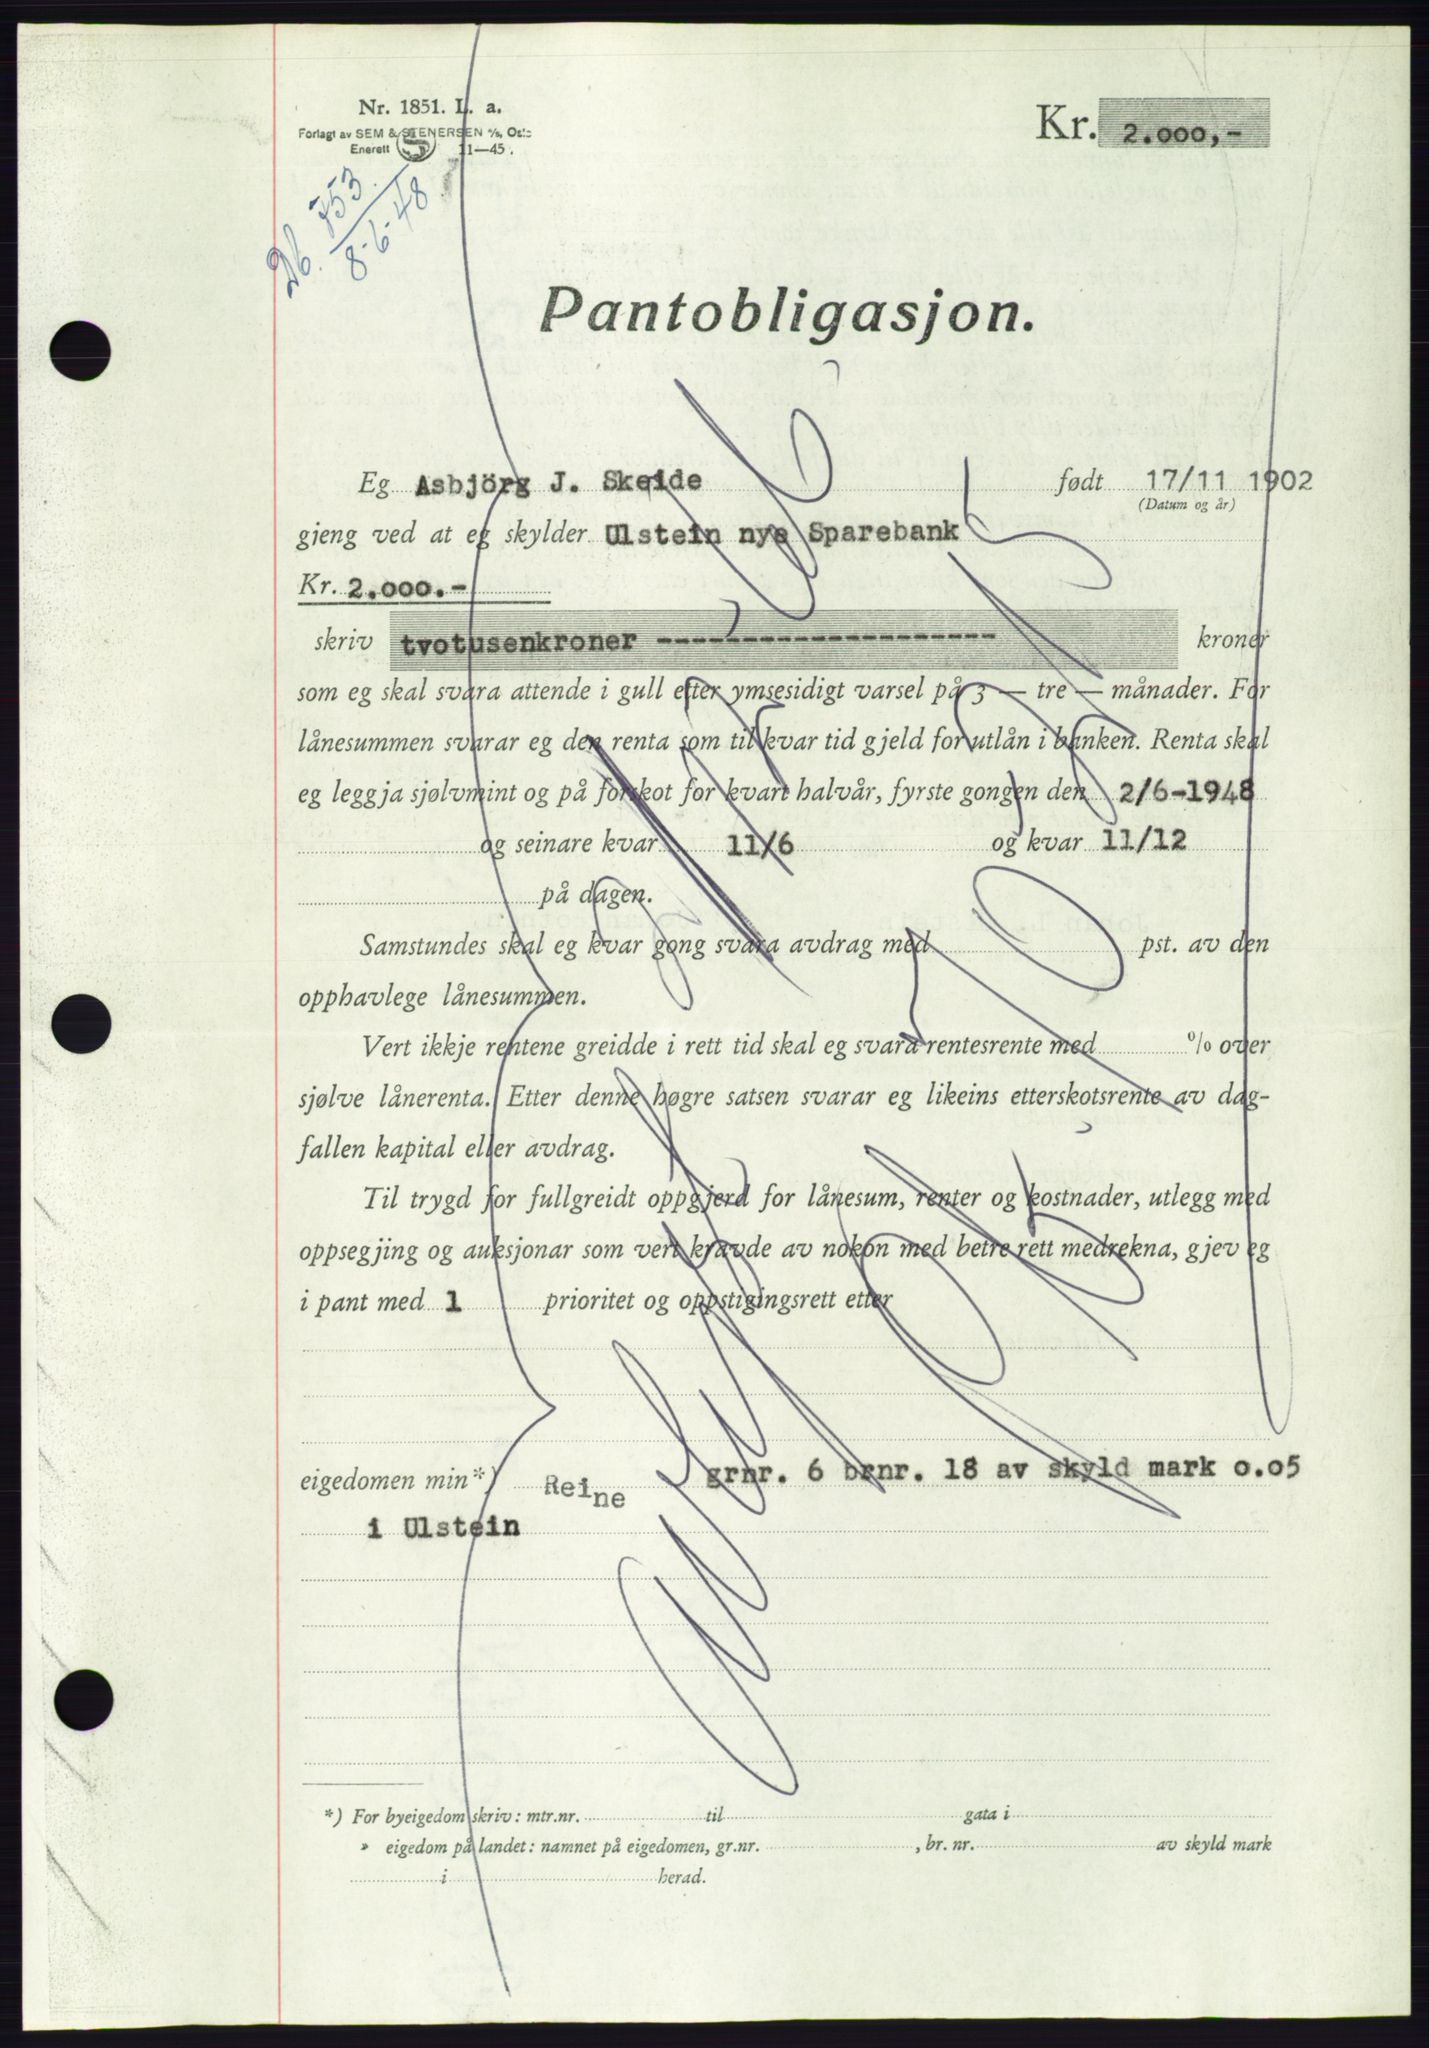 Nr. 1851. L. a.
Forlagt av SEM & STENERSEN A/S, Oslo
Enerett 11—45.
Kr. 2.000,-
Db. 753
8-6-48
Pantobligasjon.
Eg Asbjörg J. Skeide født 17/11 1902
(Datum og år)
gjeng ved at eg skylder Ulstein nye Sparebank
Kr. 2.000.-
skriv tvotusenkroner -------------------- kroner
som eg skal svara attende i gull etter ymsesidigt varsel på 3 — tre — månader. For
lånesummen svarar eg den renta som til kvar tid gjeld for utlån i banken. Renta skal
eg leggja sjølvmint og på forskot for kvart halvår, fyrste gongen den 2/6-1948
og seinare kvar 11/6 og kvar 11/12
på dagen.
Samstundes skal eg kvar gong svara avdrag med pst. av den
opphavlege lånesummen.
Vert ikkje rentene greidde i rett tid skal eg svara rentesrente med % over
sjølve lånerenta. Etter denne høgre satsen svarar eg likeins etterskotsrente av dag-
fallen kapital eller avdrag.
Til trygd for fullgreidt oppgjerd for lånesum, renter og kostnader, utlegg med
oppsegjing og auksjonar som vert kravde av nokon med betre rett medrekna, gjev eg
i pant med 1 prioritet og oppstigingsrett etter
eigedomen min*) Reine grnr. 6 brnr. 18 av skyld mark 0.05
i Ulstein
*) For byeigedom skriv: mtr.nr. til gata i
» eigedom på landet: namnet på eigedomen, gr.nr. , br. nr. av skyld mark
i herad.